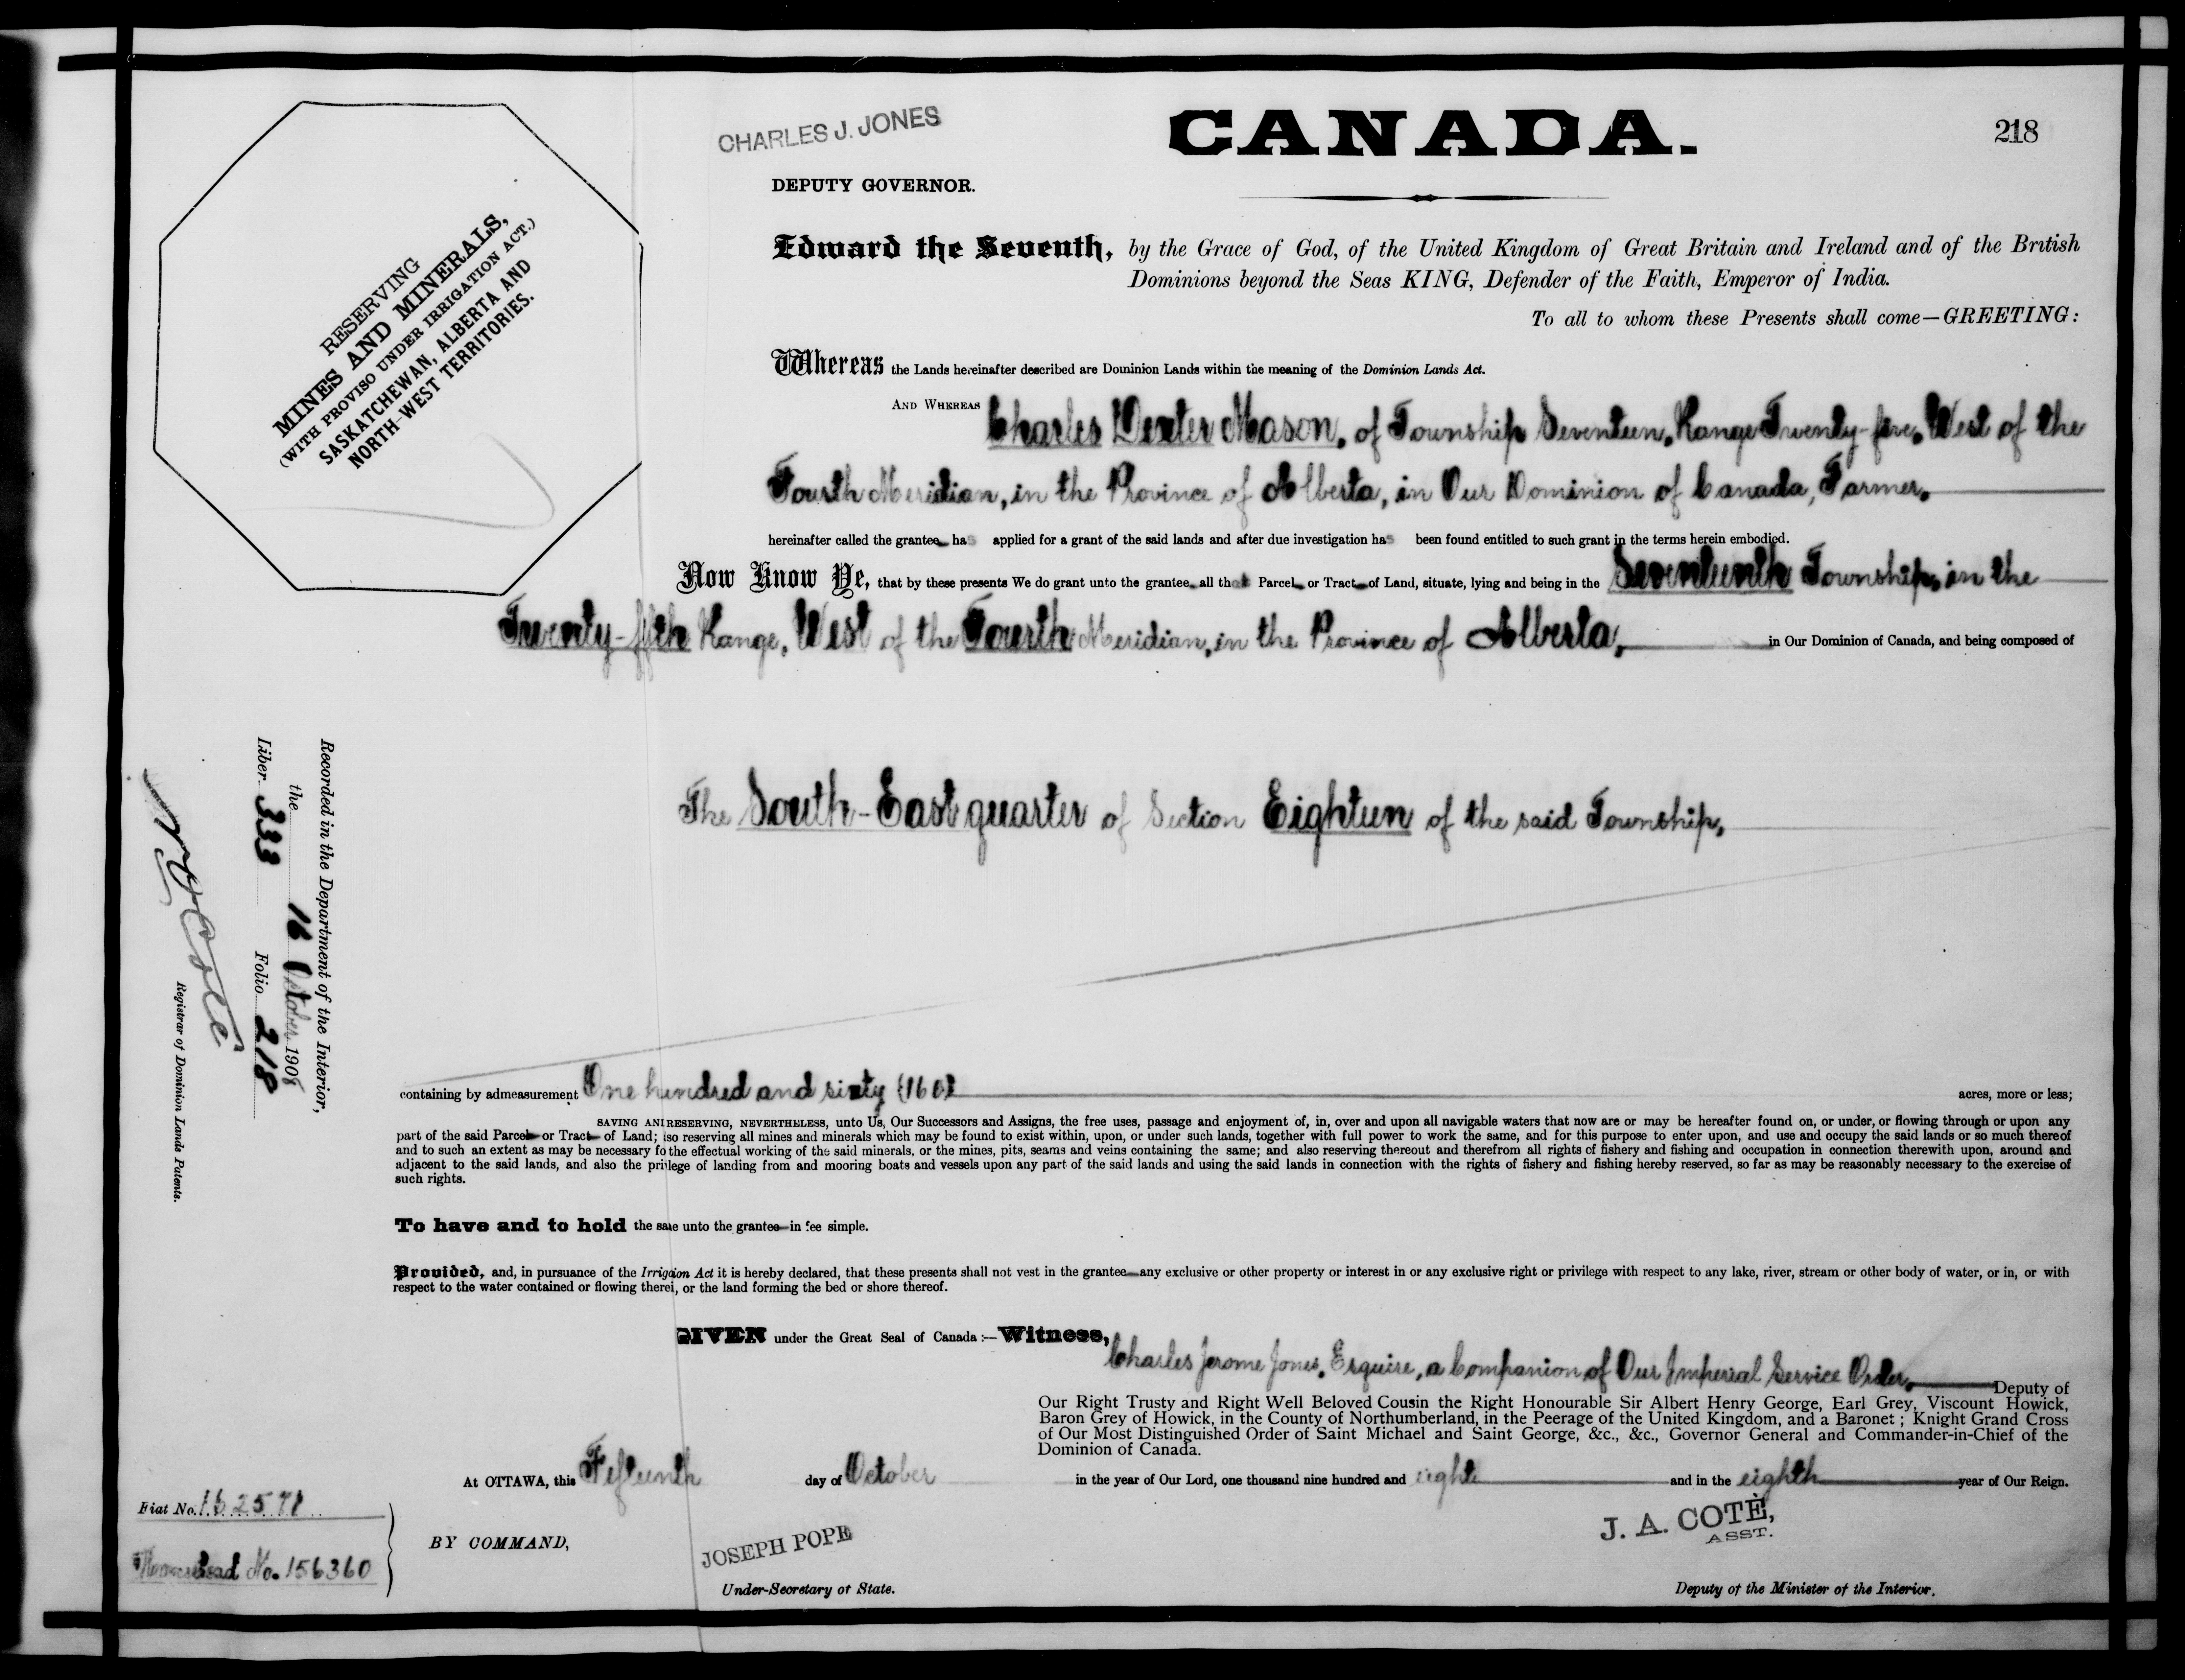 CHARLES J. JONES
CANADA.
218
DEPUTY GOVERNOR.
RESERVING
MINES AND MINERALS,
(WITH PROVISO UNDER IRRIGATION ACT.)
SASKATCHEWAN, ALBERTA AND
NORTH-WEST TERRITORIES.
Edward the Seventh, by the Grace of God, of the United Kingdom of Great Britain and Ireland and of the British
Dominions beyond the Seas KING, Defender of the Faith, Emperor of India.
To all to whom these Presents shall come—GREETING:
Whereas the Lands hereinafter described are Dominion Lands within the meaning of the Dominion Lands Act.
AND WHEREAS Charles Dexter Mason, of Township Seventeen, Range Twenty-five, West of the
Fourth Meridian, in the Province of Alberta, in Our Dominion of Canada, Farmer,
hereinafter called the grantee has applied for a grant of the said lands and after due investigation has been found entitled to such grant in the terms herein embodied.
Now Know Ye, that by these presents We do grant unto the grantee all that Parcel or Tract of Land, situate, lying and being in the Seventeenth Township, in the
Twenty-fifth Range, West of the Fourth Meridian, in the Province of Alberta, in Our Dominion of Canada, and being composed of
The South-East quarter of Section Eighteen of the said Township,
Recorded in the Department of the Interior,
the 16 October 1908
Liber 333 Folio 218
N O Coté
Registrar of Dominion Lands Patents.
containing by admeasurement One hundred and sixty (160) acres, more or less;
SAVING AND RESERVING, NEVERTHELESS, unto Us, Our Successors and Assigns, the free uses, passage and enjoyment of, in, over and upon all navigable waters that now are or may be hereafter found on, or under, or flowing through or upon any
part of the said Parcel or Tract of Land; also reserving all mines and minerals which may be found to exist within, upon, or under such lands, together with full power to work the same, and for this purpose to enter upon, and use and occupy the said lands or so much thereof
and to such an extent as may be necessary for the effectual working of the said minerals, or the mines, pits, seams and veins containing the same; and also reserving thereout and therefrom all rights of fishery and fishing and occupation in connection therewith upon, around and
adjacent to the said lands, and also the privilege of landing from and mooring boats and vessels upon any part of the said lands and using the said lands in connection with the rights of fishery and fishing hereby reserved, so far as may be reasonably necessary to the exercise of
such rights.
To have and to hold the same unto the grantee in fee simple.
Provided, and, in pursuance of the Irrigation Act it is hereby declared, that these presents shall not vest in the grantee any exclusive or other property or interest in or any exclusive right or privilege with respect to any lake, river, stream or other body of water, or in, or with
respect to the water contained or flowing therein, or the land forming the bed or shore thereof.
GIVEN under the Great Seal of Canada:—Witness,
Charles Jerome Jones, Esquire, a Companion of Our Imperial Service Order, Deputy of
Our Right Trusty and Right Well Beloved Cousin the Right Honourable Sir Albert Henry George, Earl Grey, Viscount Howick,
Baron Grey of Howick, in the County of Northumberland, in the Peerage of the United Kingdom, and a Baronet; Knight Grand Cross
of Our Most Distinguished Order of Saint Michael and Saint George, &c., &c., Governor General and Commander-in-Chief of the
Dominion of Canada.
At OTTAWA, this Fifteenth day of October in the year of Our Lord, one thousand nine hundred and eight and in the eighth year of Our Reign.
Fiat No. 162571
Homestead No. 156360
BY COMMAND,
JOSEPH POPE
Under-Secretary of State.
J. A. COTÉ,
ASST.
Deputy of the Minister of the Interior.